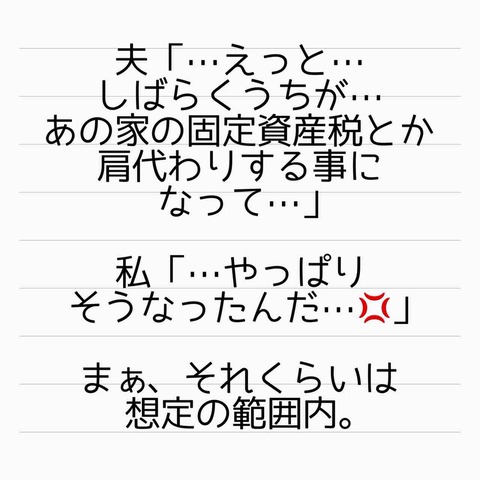 夫「…えっと…
しばらくうちが…
あの家の固定資産税とか
肩代わりする事に
なって…」
私「…やっぱり
そうなったんだ…💢」
まぁ、それくらいは
想定の範囲内。